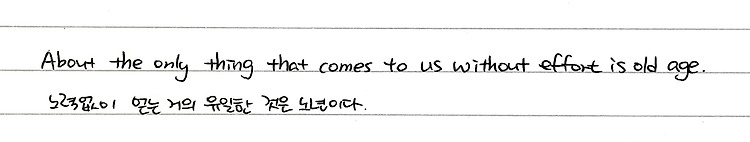 About the only thing that comes to us without effort is old age.
노력없이 얻는 거의 유일한 것은 노년이다.